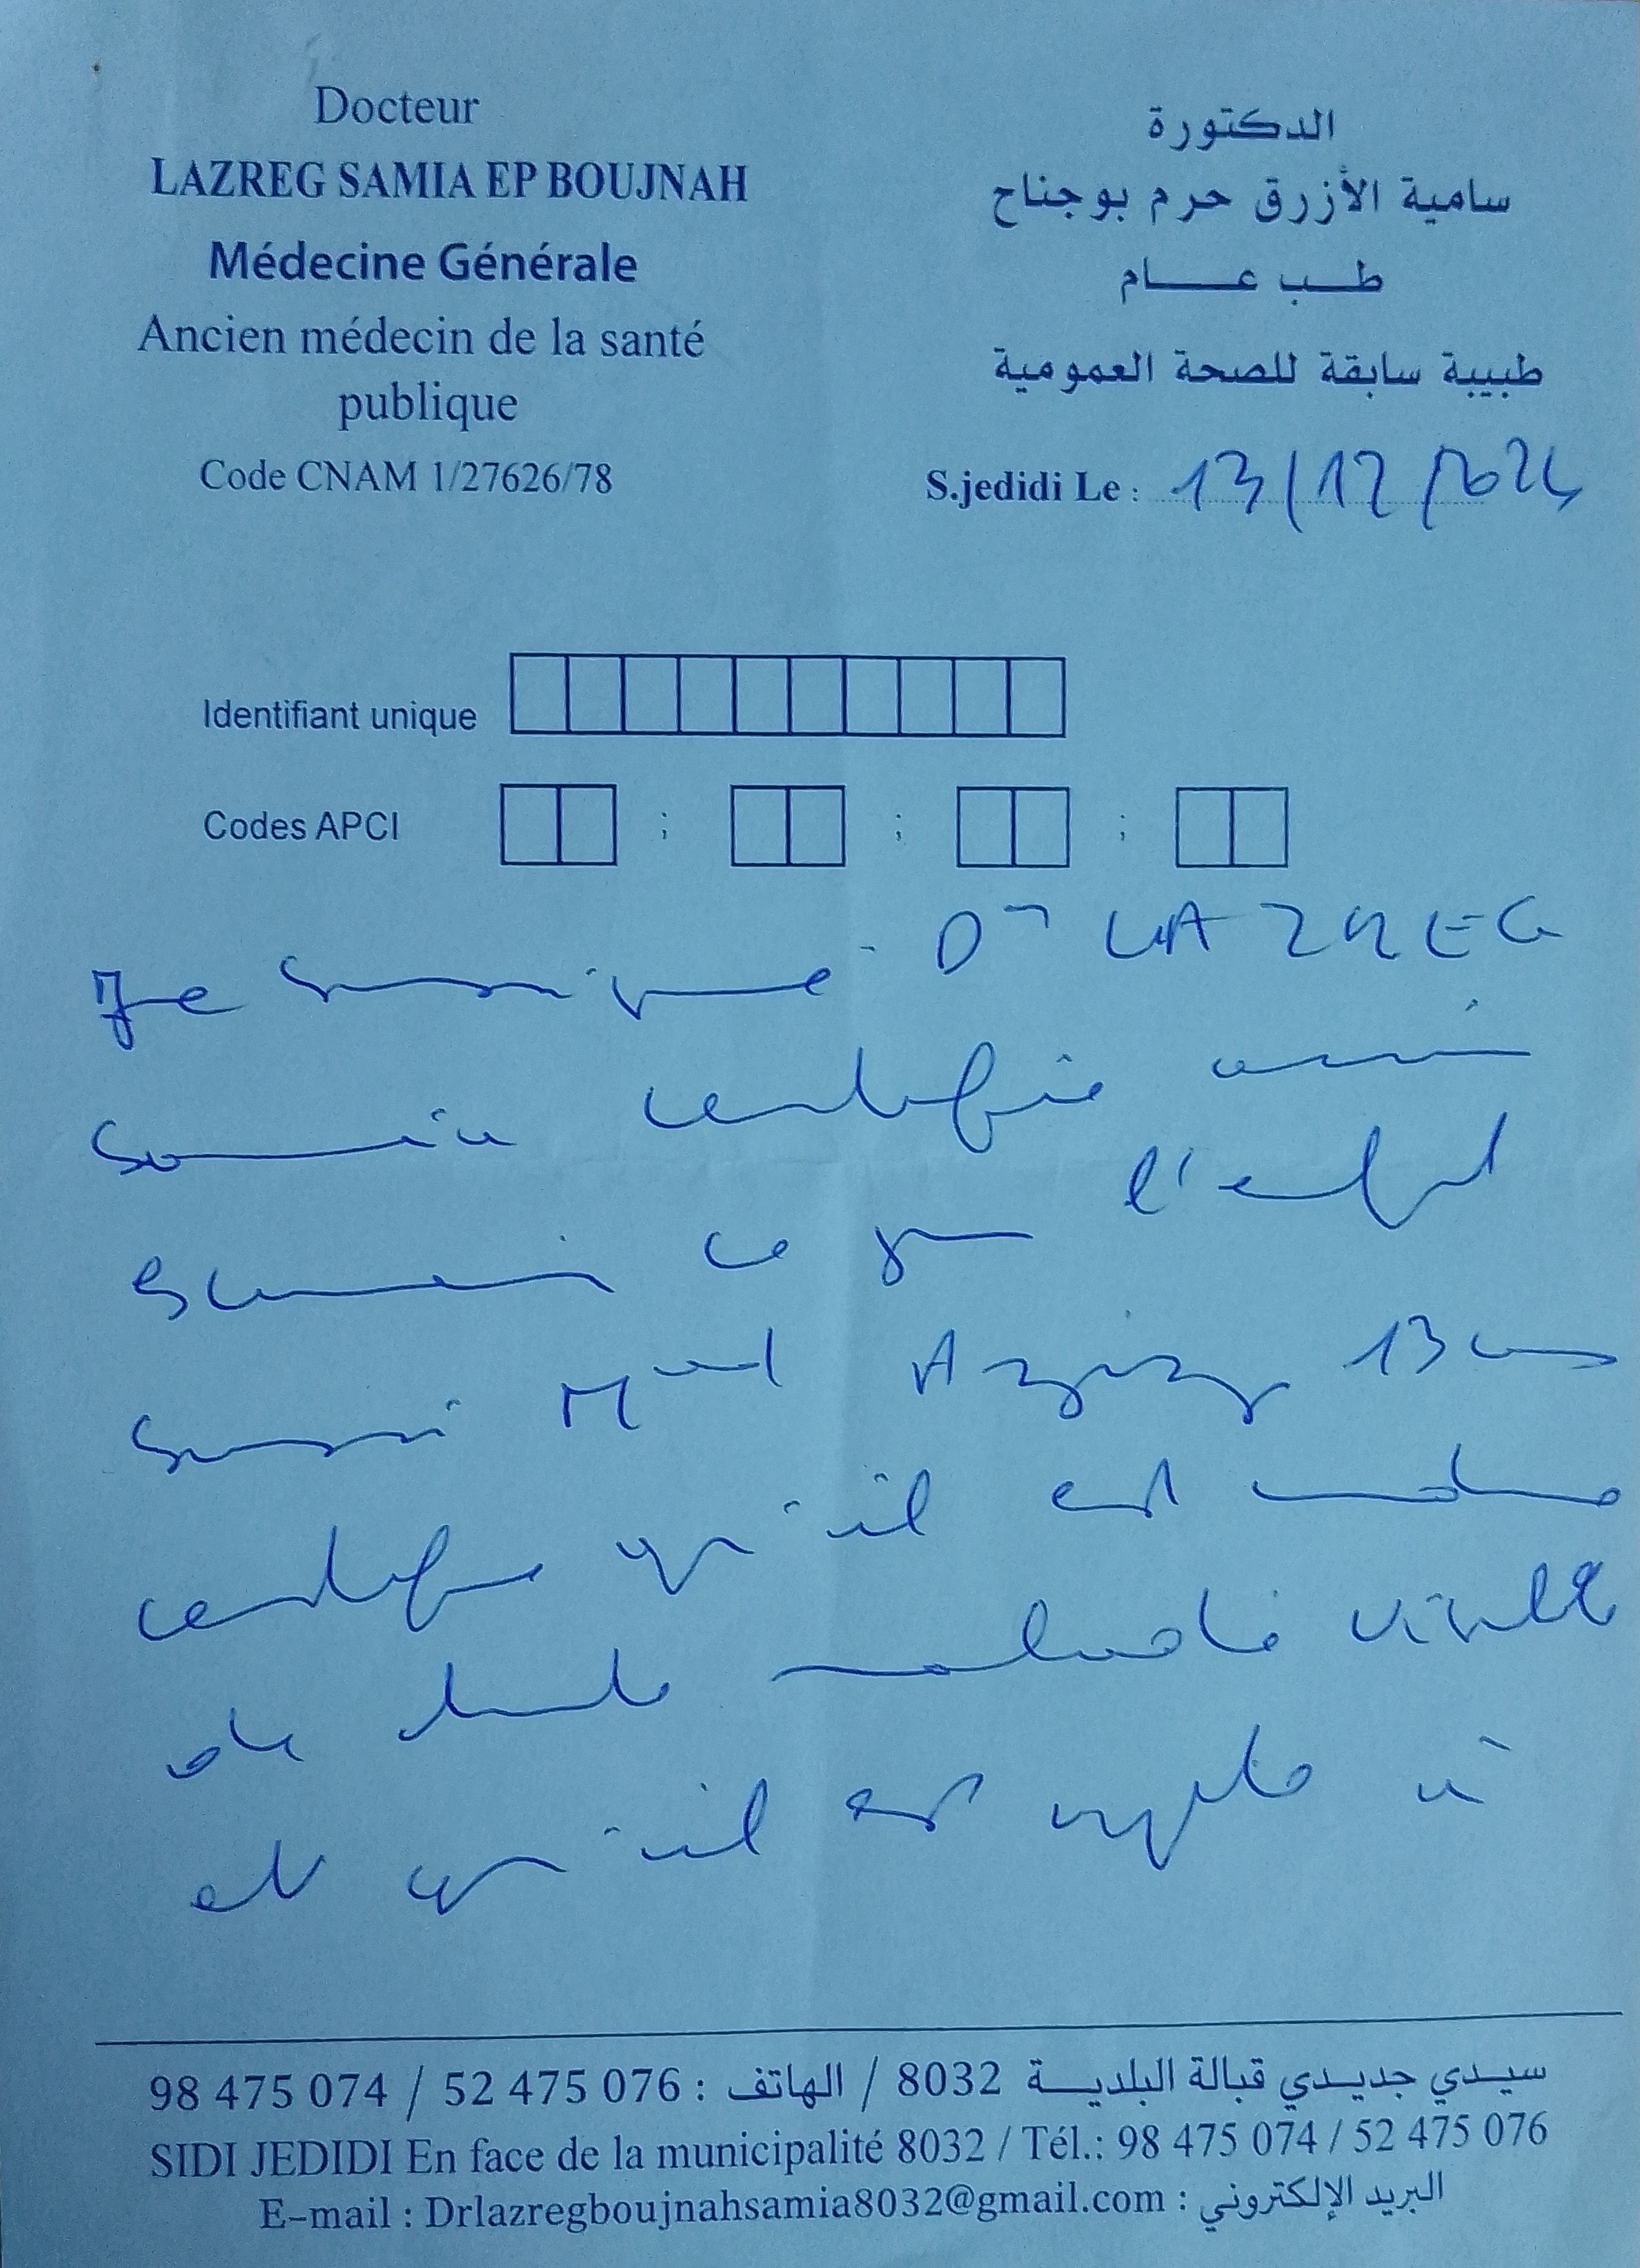 Docteur
LAZREG SAMIA EP BOUJNAH
Médecine Générale
Ancien médecin de la santé
publique
Code CNAM 1/27626/78
الدكتورة
سامية الأزرق حرم بوجناح
طب عام
طبيبة سابقة للصحة العمومية
S.jedidi Le : 13/12/2024
Identifiant unique
Codes APCI ; ; ;
Je soussigné Dr LAZREG
Samia certifie avoir
examiné ce jour l'enfant
Med Aziz 13 ans
certifie qu'il est indemne
de toute maladie visible
et qu'il est apte à
سيدي جديدي قبالة البلدية 8032 / الهاتف : 98 475 074 / 52 475 076
SIDI JEDIDI En face de la municipalité 8032 / Tél.: 98 475 074 / 52 475 076
E-mail : Drlazregboujnahsamia8032@gmail.com : البريد الإلكتروني